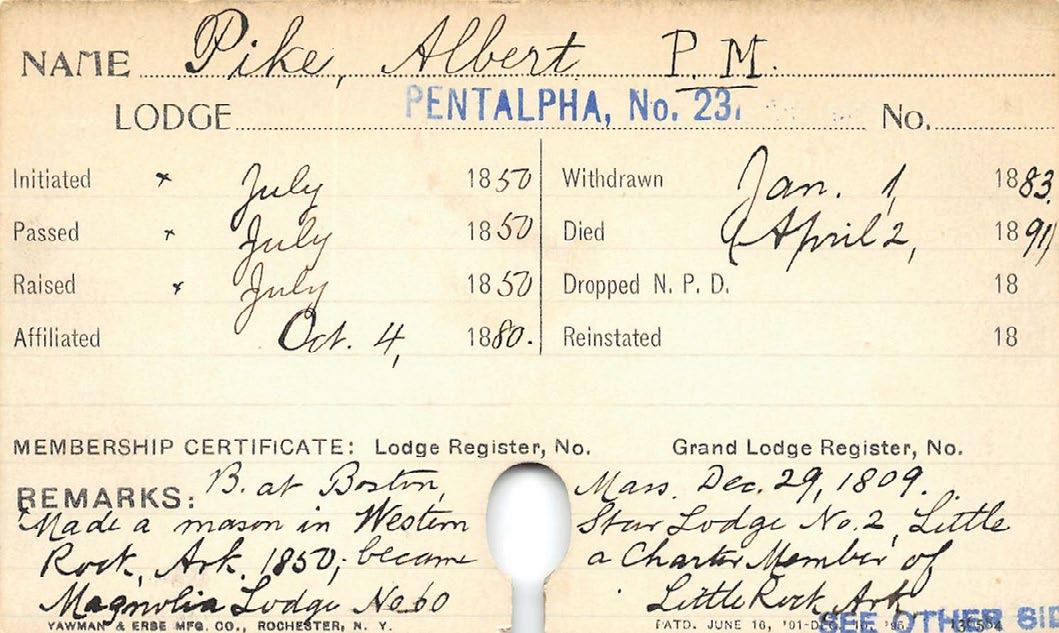 NAME Pike, Albert P. M.
LODGE PENTALPHA, No. 23. No.
Initiated x July 1850 Withdrawn Jan. 1, 1883.
Passed x July 1850 Died April 2, 1891,
Raised x July 1850 Dropped N. P. D. 18
Affiliated Oct. 4, 1880. Reinstated 18
MEMBERSHIP CERTIFICATE: Lodge Register, No. Grand Lodge Register, No.
REMARKS: B. at Boston, Mass. Dec. 29, 1809.
Made a mason in Western Star Lodge No. 2, Little
Rock, Ark. 1850; became a Charter Member of
Magnolia Lodge No 60 Little Rock, Ark.
YAWMAN & ERBE MFG. CO., ROCHESTER, N. Y. PATD. JUNE 16, '01-DEC.
SEE OTHER SIDE